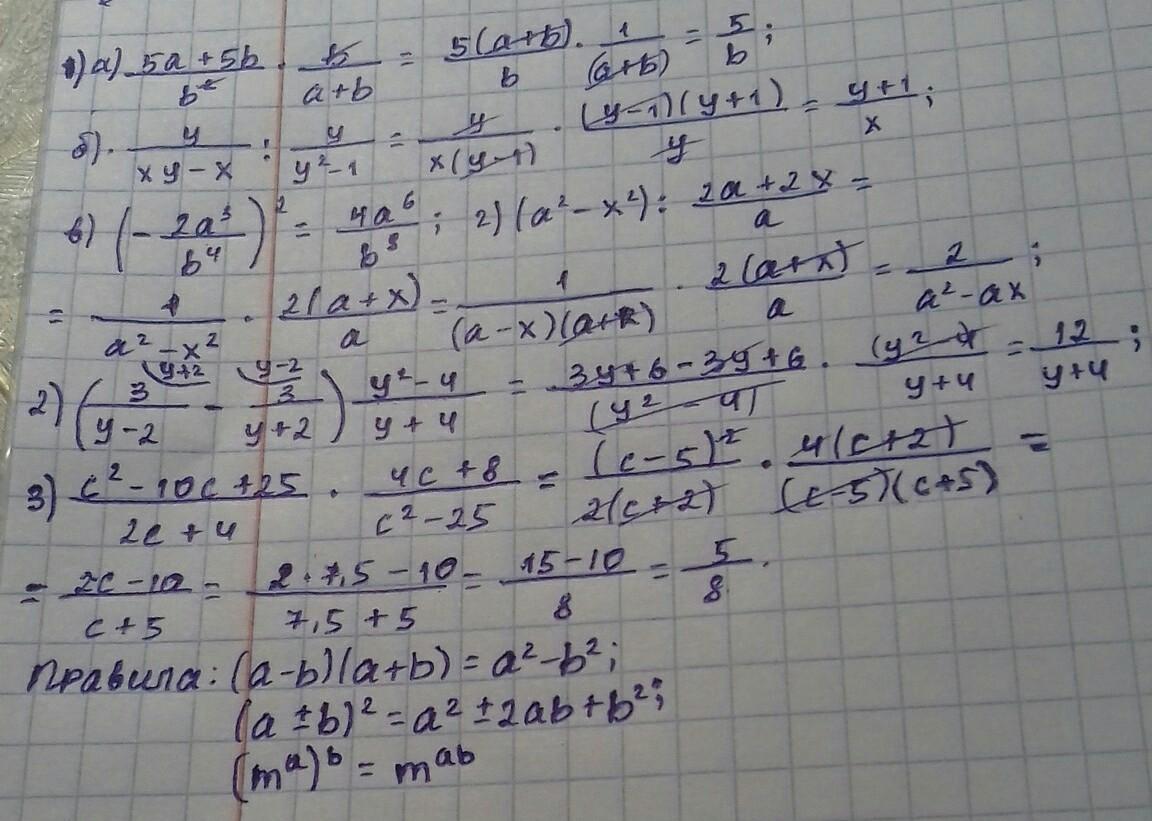 1) а) (5a+5b)/b² · b/(a+b) = 5(a+b)/b · 1/(a+b) = 5/b;
б). y/(xy-x) : y/(y²-1) = y/(x(y-1)) · (y-1)(y+1)/y = (y+1)/x;
в) (-2a³/b⁴)² = 4a⁶/b⁸; 2) (a²-x²) : (2a+2x)/a =
= 1/(a²-x²) · 2(a+x)/a = 1/((a-x)(a+x)) · 2(a+x)/a = 2/(a²-ax);
2) (3/(y-2) ^(y+2) - 3/(y+2) ^(y-2)) (y²-4)/(y+4) = (3y+6-3y+6)/(y²-4) · (y²-4)/(y+4) = 12/(y+4);
3) (c²-10c+25)/(2c+4) · (4c+8)/(c²-25) = (c-5)²/(2(c+2)) · 4(c+2)/((c-5)(c+5)) =
= (2c-10)/(c+5) = (2·7,5-10)/(7,5+5) = (15-10)/8 = 5/8.
Правила: (a-b)(a+b) = a²-b²;
(a±b)² = a²±2ab+b²;
(mᵃ)ᵇ = mᵃᵇ